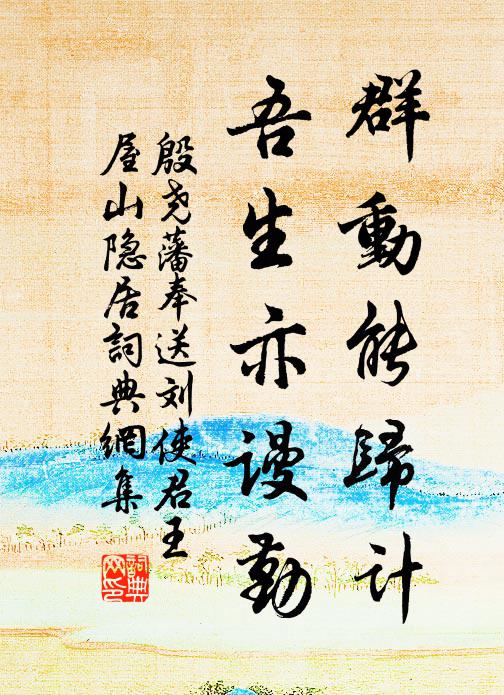 群動能歸計
吾生亦谩勤
殷尧藩奉送刘使君王
屋山隐居詞典網集
詞典
网印